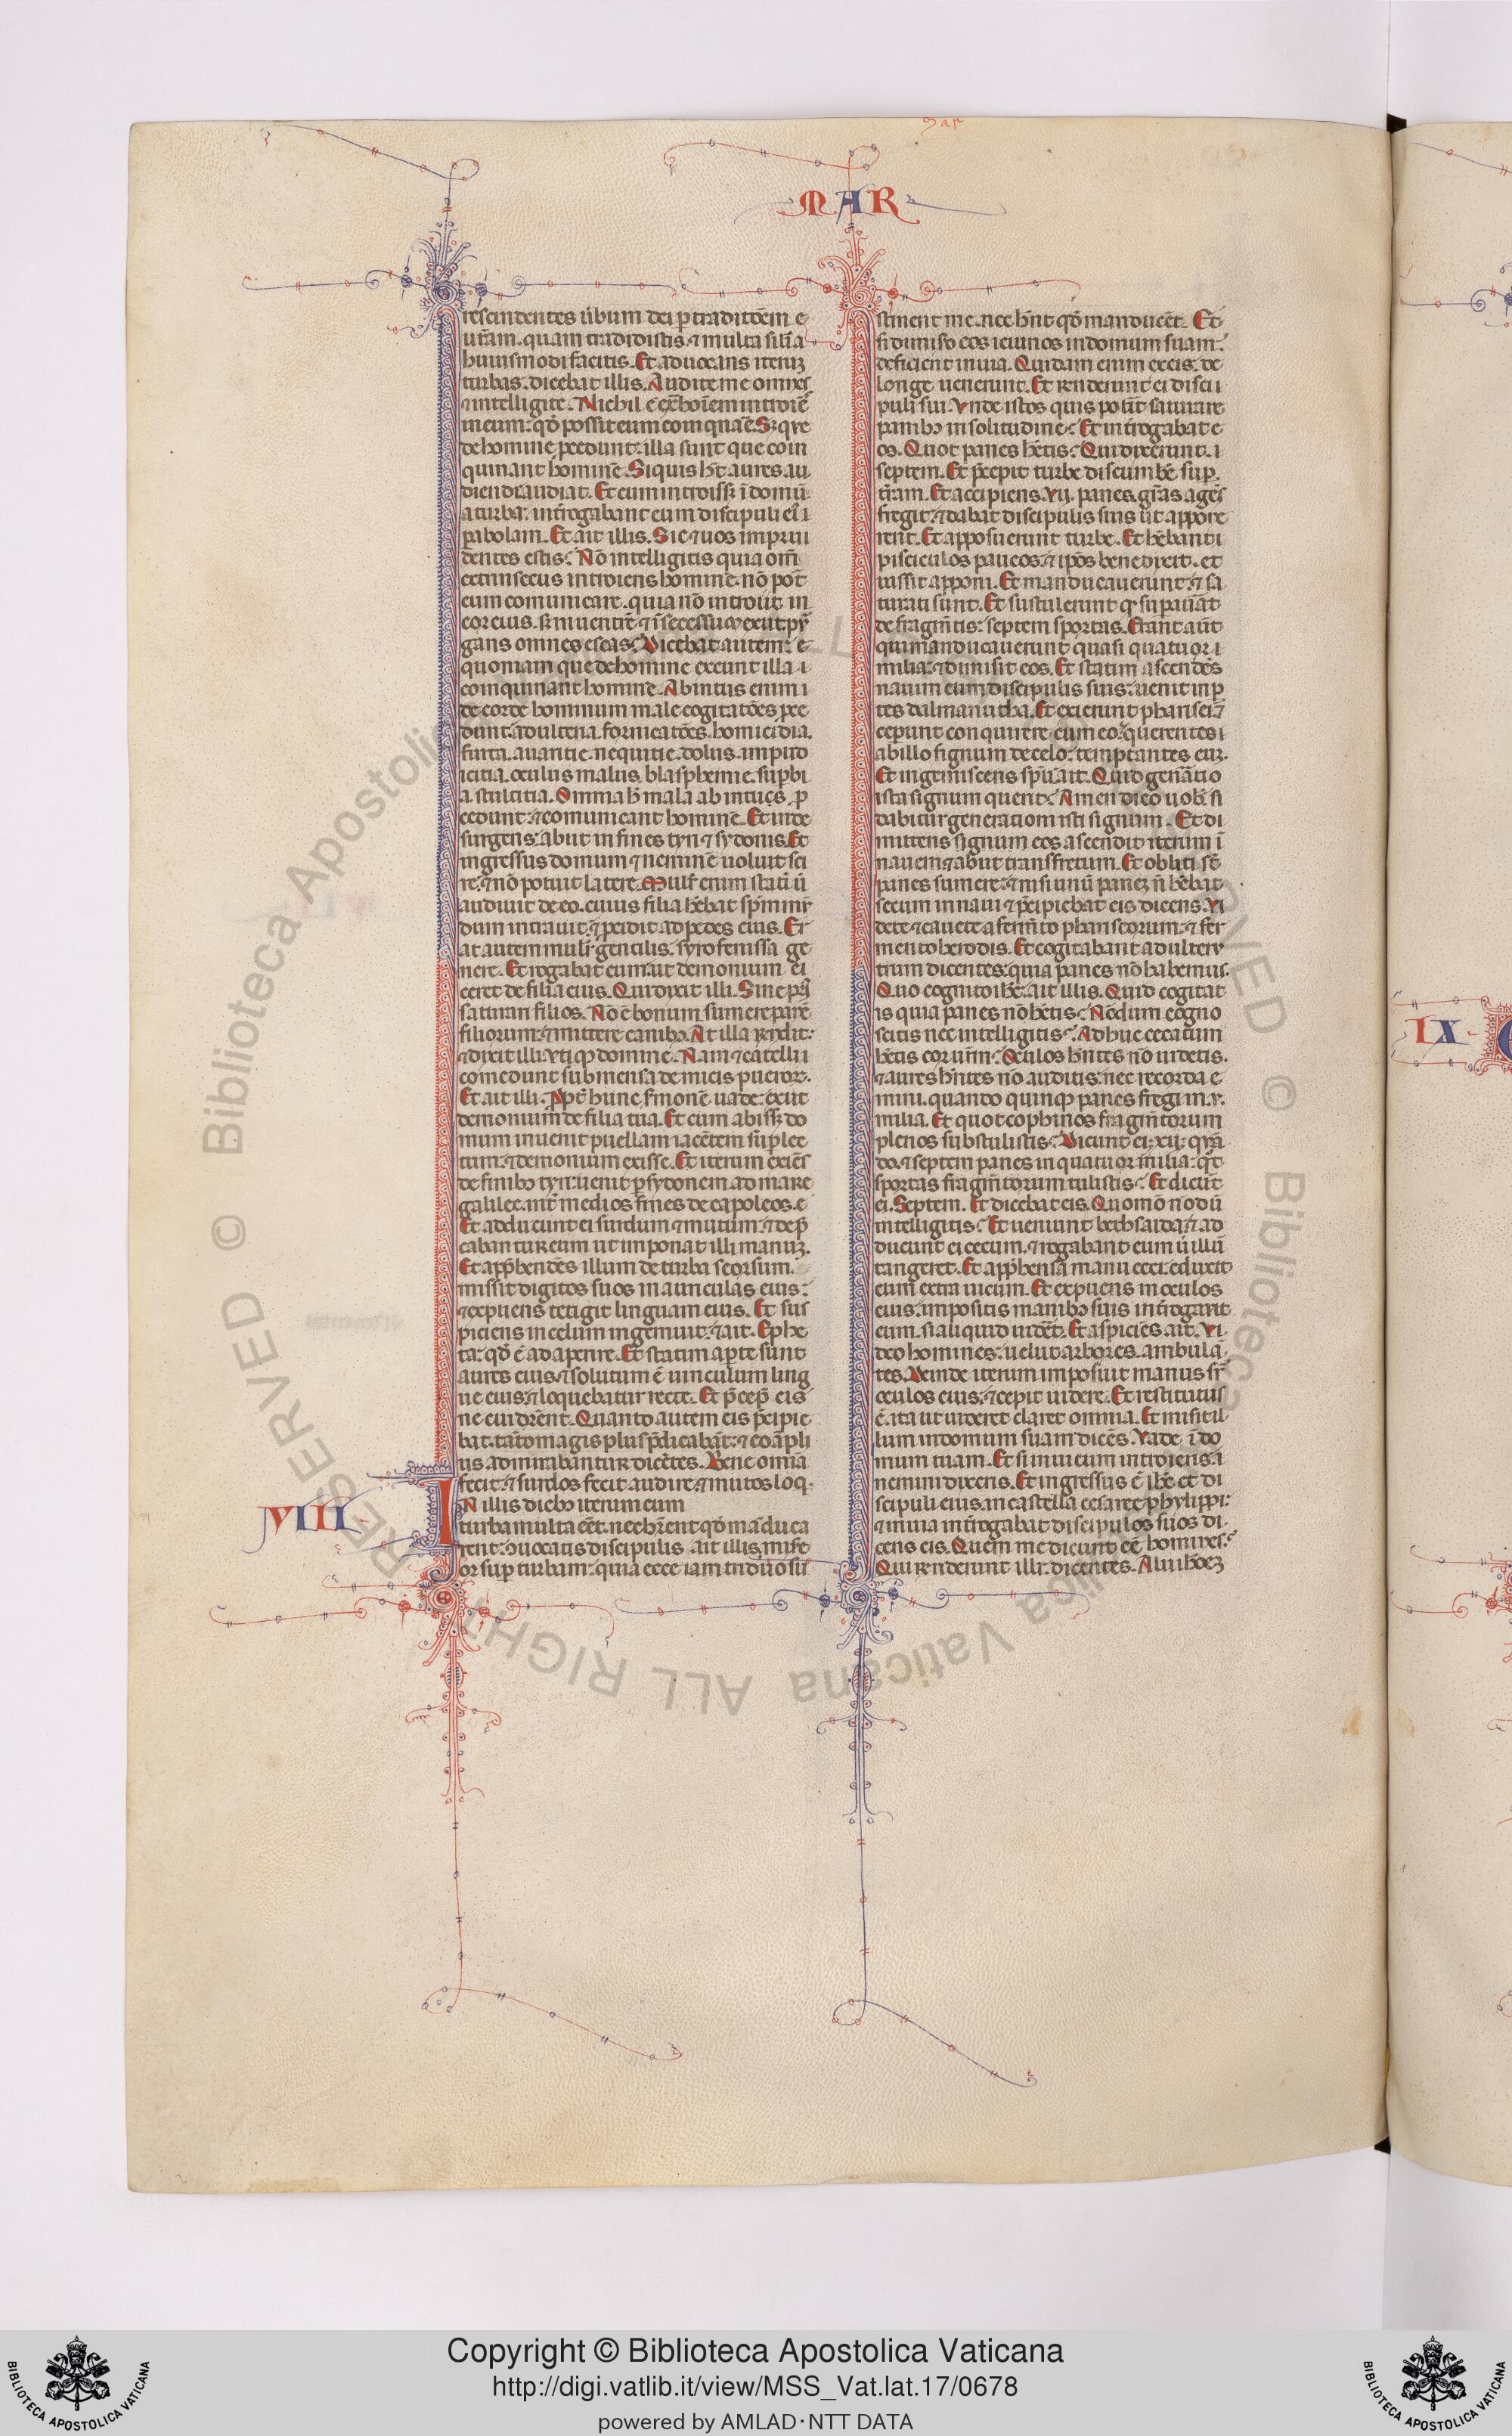 MAR
rescindentes űbum dei ꝑ traditiōem e
ur̄am. quam tradidistis. ⁊ multa silīa
huiusmodi facitis. Et aduocans iteruȝ
turbas. dicebat illis. Audite me omnes
⁊ intelligite. Nichil ē ex̄ hoīem introiē̄s
in eum: qd̓ possit eum coinquīare. Sȝ q̄
de homine ꝓcedunt. illa sunt que coin
quinant hominē. Siquis hēt aures au
diendi audiat. Et cum introissȝ ī domū
a turba: intr̄ogabant eum discipuli ei i
ꝑabolam. Et ait illis. Sic ⁊ uos imprui
dentes estis? Nō intelligitis quia om̄
extrinsecus introiens hominē. nō pōt
eum comunicare. quia nō introiit in
cor eius. sȝ in uentrē ⁊ ī secessuȝ exit pur
gans omnes escas? Dicebat autem: e
quoniam que de homine exeunt illa i
coinquinant hominē. Ab intus enim i
de corde hominum male cogitatōes ꝓce
dunt. adulteria. fornicatōes. homicidia.
furta. auaritie. nequitie. dolus. impud
icitia. oculus malus. blasphemie. suꝑbi
a. stultitia. Omnia h̄ mala ab intus ꝓ
cedunt: ⁊ comunicant hominē. Et inde
surgens: abiit in fines tyri ⁊ sydonis. Et
ingressus domum ⁊ neminē uoluit sci
re: ⁊ nō potuit latere. Mulr̄ enim stati ū
audiuit de eo. cuius filia hēbat spm̄ inm̄
dum intrauit: ⁊ ꝓcidit ad pedes eius. Er
at autem mulr̄ gentilis. syrofenissa ge
nere. Et rogabat eum: ut demonium ei
ceret de filia eius. Qui dixit illi. Sine prius
saturari filios. Nō ē bonum sumere panē
filiorum: ⁊ mittere canibȝ. At illa rn̄dit:
⁊ dixit illi. Vtiqȝ domine. Nam ⁊ catelli i
comedunt sub mensa de micis pueroꝝ.
Et ait illi. Ꝓpt̄ hunc sm̄onē uade: exiit
demonium de filia tua. Et cum abissȝ do
mum inuenit puellam iacētem supra lec
tum: ⁊ demonium exisse. Et iterum exiēs
de finibȝ tyri: uenit ꝑ sydonem ad mare
galilee. int̄ medios fines decapoleos. e
Et adducunt ei surdum ⁊ mutum: ⁊ dep̄
cabantur eum ut imponat illi manuȝ.
Et app̄hendēs illum de turba seorsum.
missit digitos suos in auriculas eius:
⁊ expuens tetigit linguam eius. Et sus
piciens in celum ingemuit: ⁊ ait. Ephe
ta: qd̓ ē adaperire. Et statim aꝑte sunt
aures eius: ⁊ solutum ē uinculum ling
ue eius: ⁊ loquebatur recte. Et p̄cep̄ eis
ne cui dicēnt. Quanto autem eis p̄cipie
bat. tāto magis plus p̄dicabāt: ⁊ eo āpli
us admirabantur dicētes. Bene omīa
fecit: ⁊ surdos fecit audire: ⁊ mutos loq̄.
VIII
IN illis diebȝ iterum cum
turba multa eēt. nec hr̄ent qd̓ māduca
rent: ꝯuocatis discipulis. ait illis. mise
or suꝑ turbam: quia ecce iam triduo su
stinent me. nec hn̄t qd̓ manducēt. Et
si dimiso eos ieiunos in domum suam:
deficient in uia. Quidam enim ex eis: de
longe uenerunt. Et rn̄derunt ei disci i
puli sui. Vnde istos quis pot̄it saturare
panibȝ in solitudine? Et intr̄ogabat e
os. Quot panes hētis? Qui dixerunt. i
septem. Et p̄cepit turbe discumbē suꝑ
tr̄am. Et accipiens. vii. panes. gr̄as agēs
fregit: ⁊ dabat discipulis suis ut appone
rent. Et apposuerunt turbe. Et hēbant i
pisciculos paucos. ⁊ ip̄os benedixit. et
iussit apponi. Et manducauerunt: ⁊ sa
turati sunt. Et sustulerunt qd̓ suꝑauāt
de fragm̄tis: septem sportas. Erant aūt
qui manducauerunt quasi quatuor i
milia: ⁊ dimisit eos. Et statim ascendēs
nauim cum discipulis suis: uenit in ꝑ
tes dalmanutha. Et exierunt pharisei: ⁊
ceperunt conquirere cum eo: querentes i
ab illo signum de celo: temptantes euȝ.
Et ingemiscens spū ait. Quid genātio
ista signum querit? Amen dico uob̄. si
dabitur generationi isti signum. Et di
mittens signum eos ascendit iterum ī
nauem: ⁊ abiit trans fretum. Et obliti sē
panes sumere: ⁊ nisi unū panez n̄ hēbāt
secum in naui ⁊ p̄cipiebat eis dicens. Vi
dete ⁊ cauete a ferm̄to phariseorum: ⁊ fer
mento herodis. Et cogitabant ad alterv
trum dicentes: quia panes nō habemus.
Quo cognito ihē. ait illis. Quid cogitat
is quia panes nō hētis? Nōdum cogno
scitis nec intelligitis? Adhuc cecatum
hētis cor ur̄m? Oculos hn̄tes nō uidetis.
⁊ aures hn̄tes nō auditis: nec recorda e
mini. quando quinqȝ panes fregi in. v.
milia. Et quot cophinos fragm̄torum
plenos substulistis? Dicunt ei: xij. qn̄
do. ⁊ septem panes in quatuor milia: qt̄
sportas fragm̄torum tulistis? Et dicūt
ei. Septem. Et dicebat eis. Quomō nōdū
intelligitis? Et ueniunt bethsaida: ⁊ ad
ducunt ei cecum. ⁊ rogabant eum ū illū
tangeret. Et app̄hensa manu ceci: eduxit
eum extra uicum. Et expuens in oculos
eius: impositis manibȝ suis intr̄ogauit
eum. si aliquid uidēt. Et aspiciēs ait. Vi
deo homines: uelut arbores. ambulā
tes. Deinde iterum imposuit manus sr̄
oculos eius: ⁊ cepit uidere. Et restitutus
ē: ita ut uideret claret omnia. Et misit il
lum in domum suam dicēs. Vade ī do
mum tuam. Et si in uicum introiens: i
nemini dixeris. Et ingressus ē ihē. et di
scipuli eius. in castella cesaree phylippi:
⁊ in uia intr̄ogabat discipulos suos di
cens eis. Quem me dicunt eē homines?
Qui rn̄derunt illi: dicentes. Alii ioh̄eȝ
IX
Copyright © Biblioteca Apostolica Vaticana
http://digi.vatlib.it/view/MSS_Vat.lat.17/0678
powered by AMLAD·NTT DATA
BIBLIOTECA APOSTOLICA VATICANA
BIBLIOTECA APOSTOLICA VATICANA